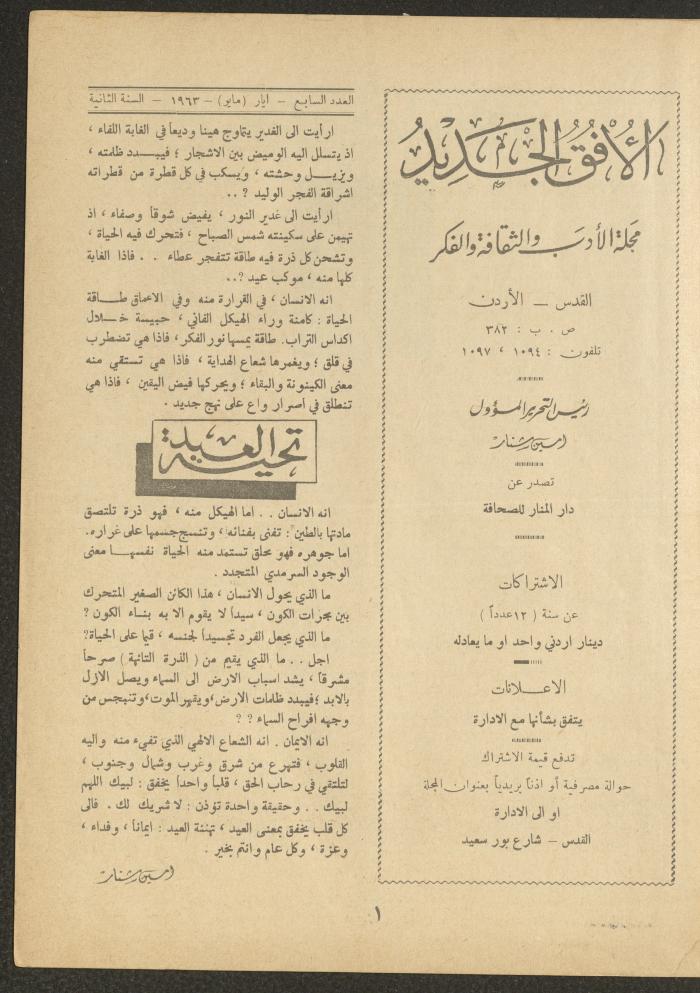 الأفق الجديد
مجلة الأدب والثقافة والفكر
القدس — الأردن
ص . ب : ٣٨٢
تلفون : ١٠٩٤ ، ١٠٩٧
رئيس التحرير المسؤول
امين شنار
تصدر عن
دار المنار للصحافة
الاشتراكات
عن سنة ( ١٢ عدداً )
دينار اردني واحد او ما يعادله
الاعــلانات
يتفق بشأنها مع الادارة
تدفع قيمة الاشتراك
حوالة مصرفية أو اذناً بريدياً بعنوان المجلة
او الى الادارة
القدس — شارع بور سعيد
العدد السابع — ايار (مايو) — ١٩٦٣ — السنة الثانية
ارأيت الى الغدير يتماوج هينا وديعاً في الغابة اللفاء ،
اذ يتسلل اليه الوميض بين الاشجار ؛ فيبــدد ظلمته ،
ويزيــل وحشته ، ويسكب في كل قطرة من قطراته
اشراقة الفجر الوليد ? ..
ارأيت الى غدير النور ، يفيض شوقاً وصفاء ، اذ
تهيمن على سكينته شمس الصباح ، فتحرك فيه الحياة ،
وتشحن كل ذرة فيه طاقة تتفجر عطاء . . فاذا الغابة
كلها منه ، موكب عيد ?..
انه الانسان ، في القرارة منه وفي الاعماق طــاقة
الحياة : كامنة وراء الهيكل الفاني ، حبيسة خــلال
اكداس التراب. طاقة يمسها نور الفكر ، فاذا هي تضطرب
في قلق ؛ ويغمرها شعاع الهداية ، فاذا هي تستقي منه
معنى الكينونة والبقاء ؛ ويحركها فيض اليقين ، فاذا هي
تنطلق في اصرار واع على نهج جديد .
تحيــة العيد
انه الانسان . . اما الهيكل منه ، فهو ذرة تلتصق
مادتها بالطين : تفنى بفنائه ، وتنسج جسمها على غراره.
اما جوهره فهو محلق تستمد منه الحياة نفسهــا معنى
الوجود السرمدي المتجدد .
ما الذي يحول الانسان ، هذا الكائن الصغير المتحرك
بين مجرات الكون ، سيداً لا يقوم الا به بنــاء الكون ?
ما الذي يجعل الفرد تجسيداً لجنسه ، قيما على الحياة?
اجل . . ما الذي يقيم من ( الذرة التائهة ) صرحاً
مشرقاً ، يشد اسباب الارض الى السماء ويصل الازل
بالابد ؛ فيبدد ظلمات الارض ، ويقهر الموت، وتنبجس من
وجهه افراح السماء ? ?
انه الايمان . انه الشعاع الالهي الذي تفيء منه واليه
القلوب ، فتهرع من شرق وغرب وشمال وجنوب ،
لتلتقي في رحاب الحق ، قلباً واحداً يخفق : لبيك اللهم
لبيك . . وحقيقة واحدة تؤذن : لا شريك لك . فالى
كل قلب يخفق بمعنى العيد ، تهنئة العيد : ايماناً ، وفداء ،
وعزة ، وكل عام وانتم بخير .
امين شنار
١